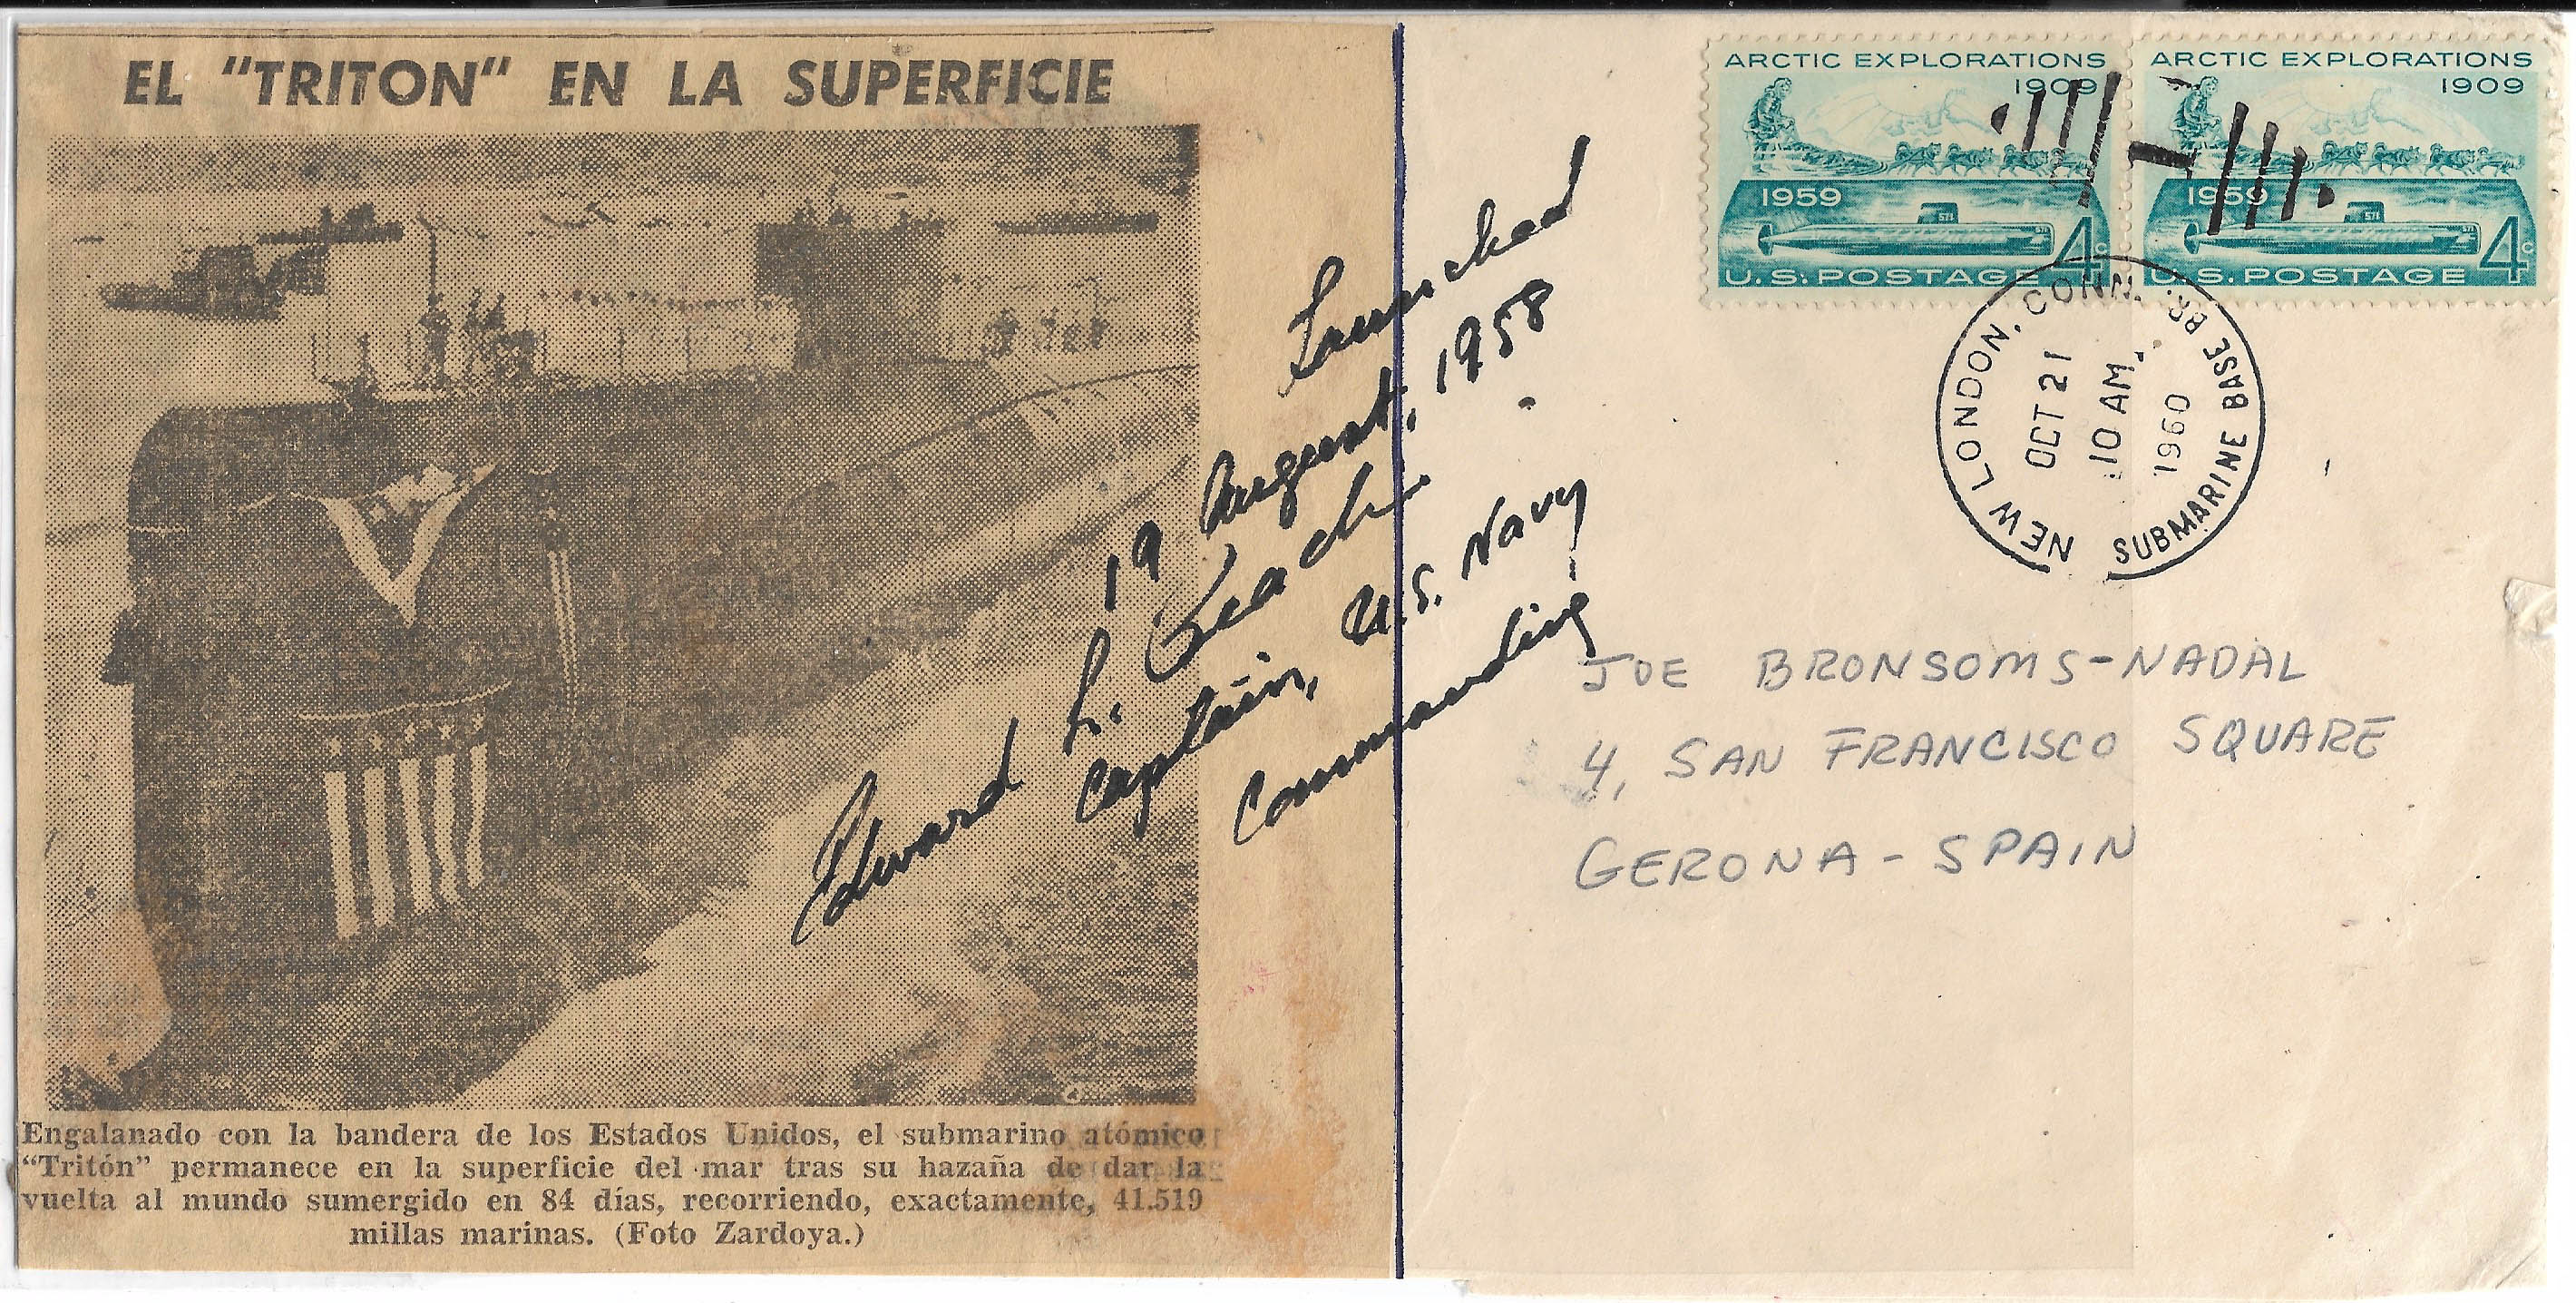 EL "TRITON" EN LA SUPERFICIE
Engalanado con la bandera de los Estados Unidos, el submarino atómico
"Tritón" permanece en la superficie del mar tras su hazaña de dar la
vuelta al mundo sumergido en 84 días, recorriendo, exactamente, 41.519
millas marinas. (Foto Zardoya.)
Launched
19 August, 1958
Edward L. Beach
Captain, U.S. Navy
Commanding
ARCTIC EXPLORATIONS
1909
1959
571
571
4c
U.S. POSTAGE
ARCTIC EXPLORATIONS
1909
1959
571
571
4c
U.S. POSTAGE
NEW LONDON, CONN.
OCT 21
10 AM
1960
SUBMARINE BASE BR.
JOE BRONSOMS-NADAL
4, SAN FRANCISCO SQUARE
GERONA - SPAIN